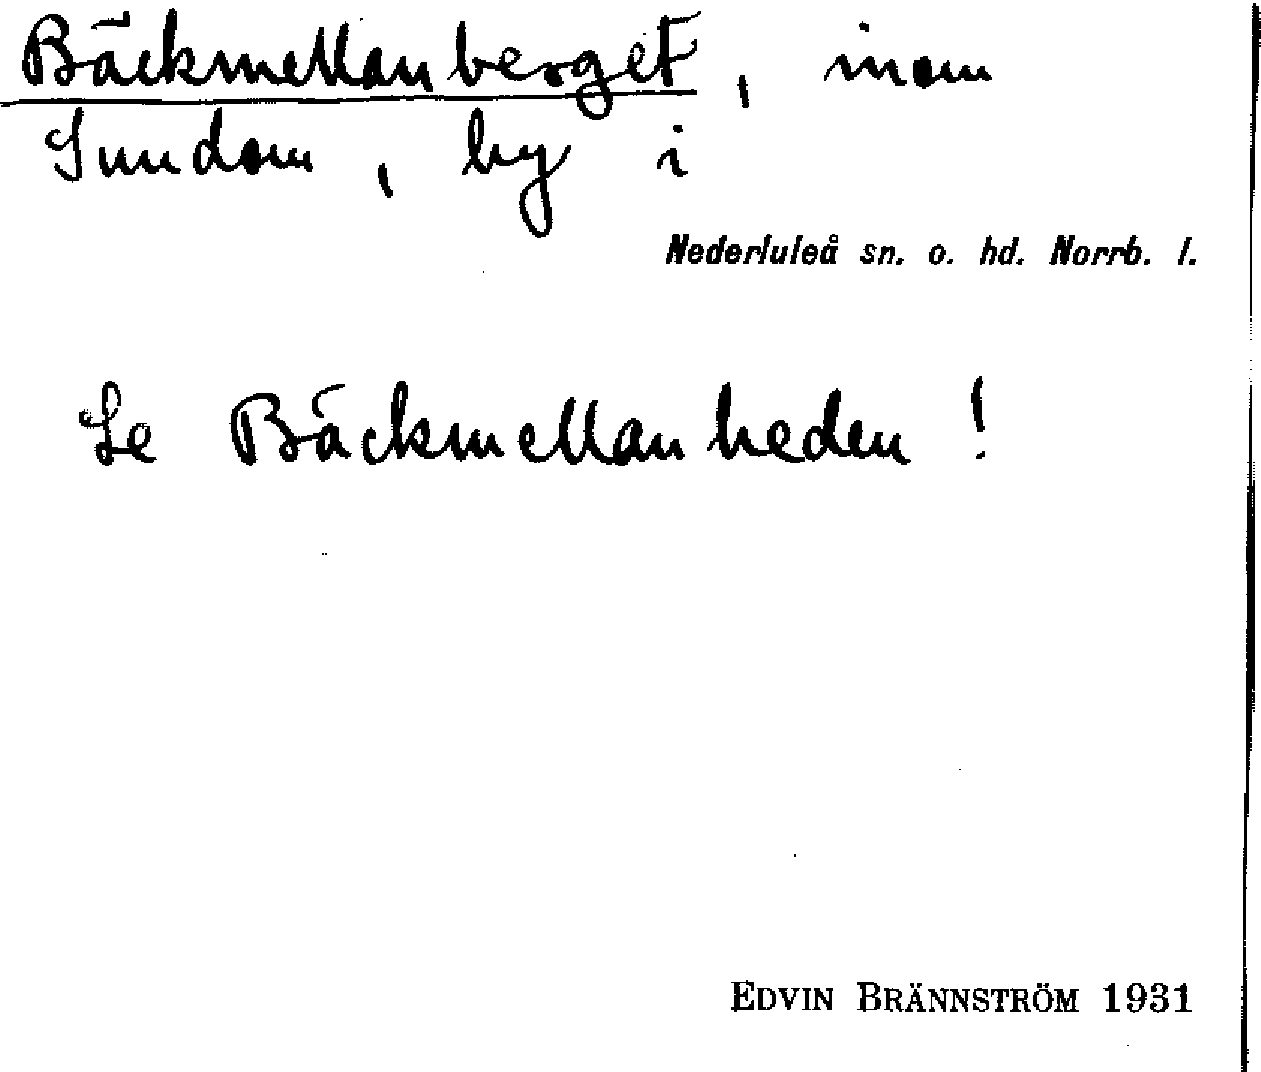 Bäckmellanberget, inom
Sundom, by i
Nederluleå sn. o. hd. Norrb. l.
Se Bäckmellanheden!
EDVIN BRÄNNSTRÖM 1931